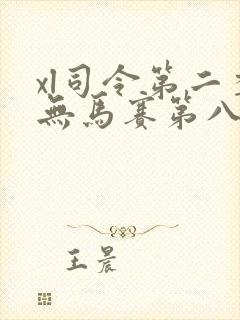 xl司令第二季
無馬賽第八
王晨